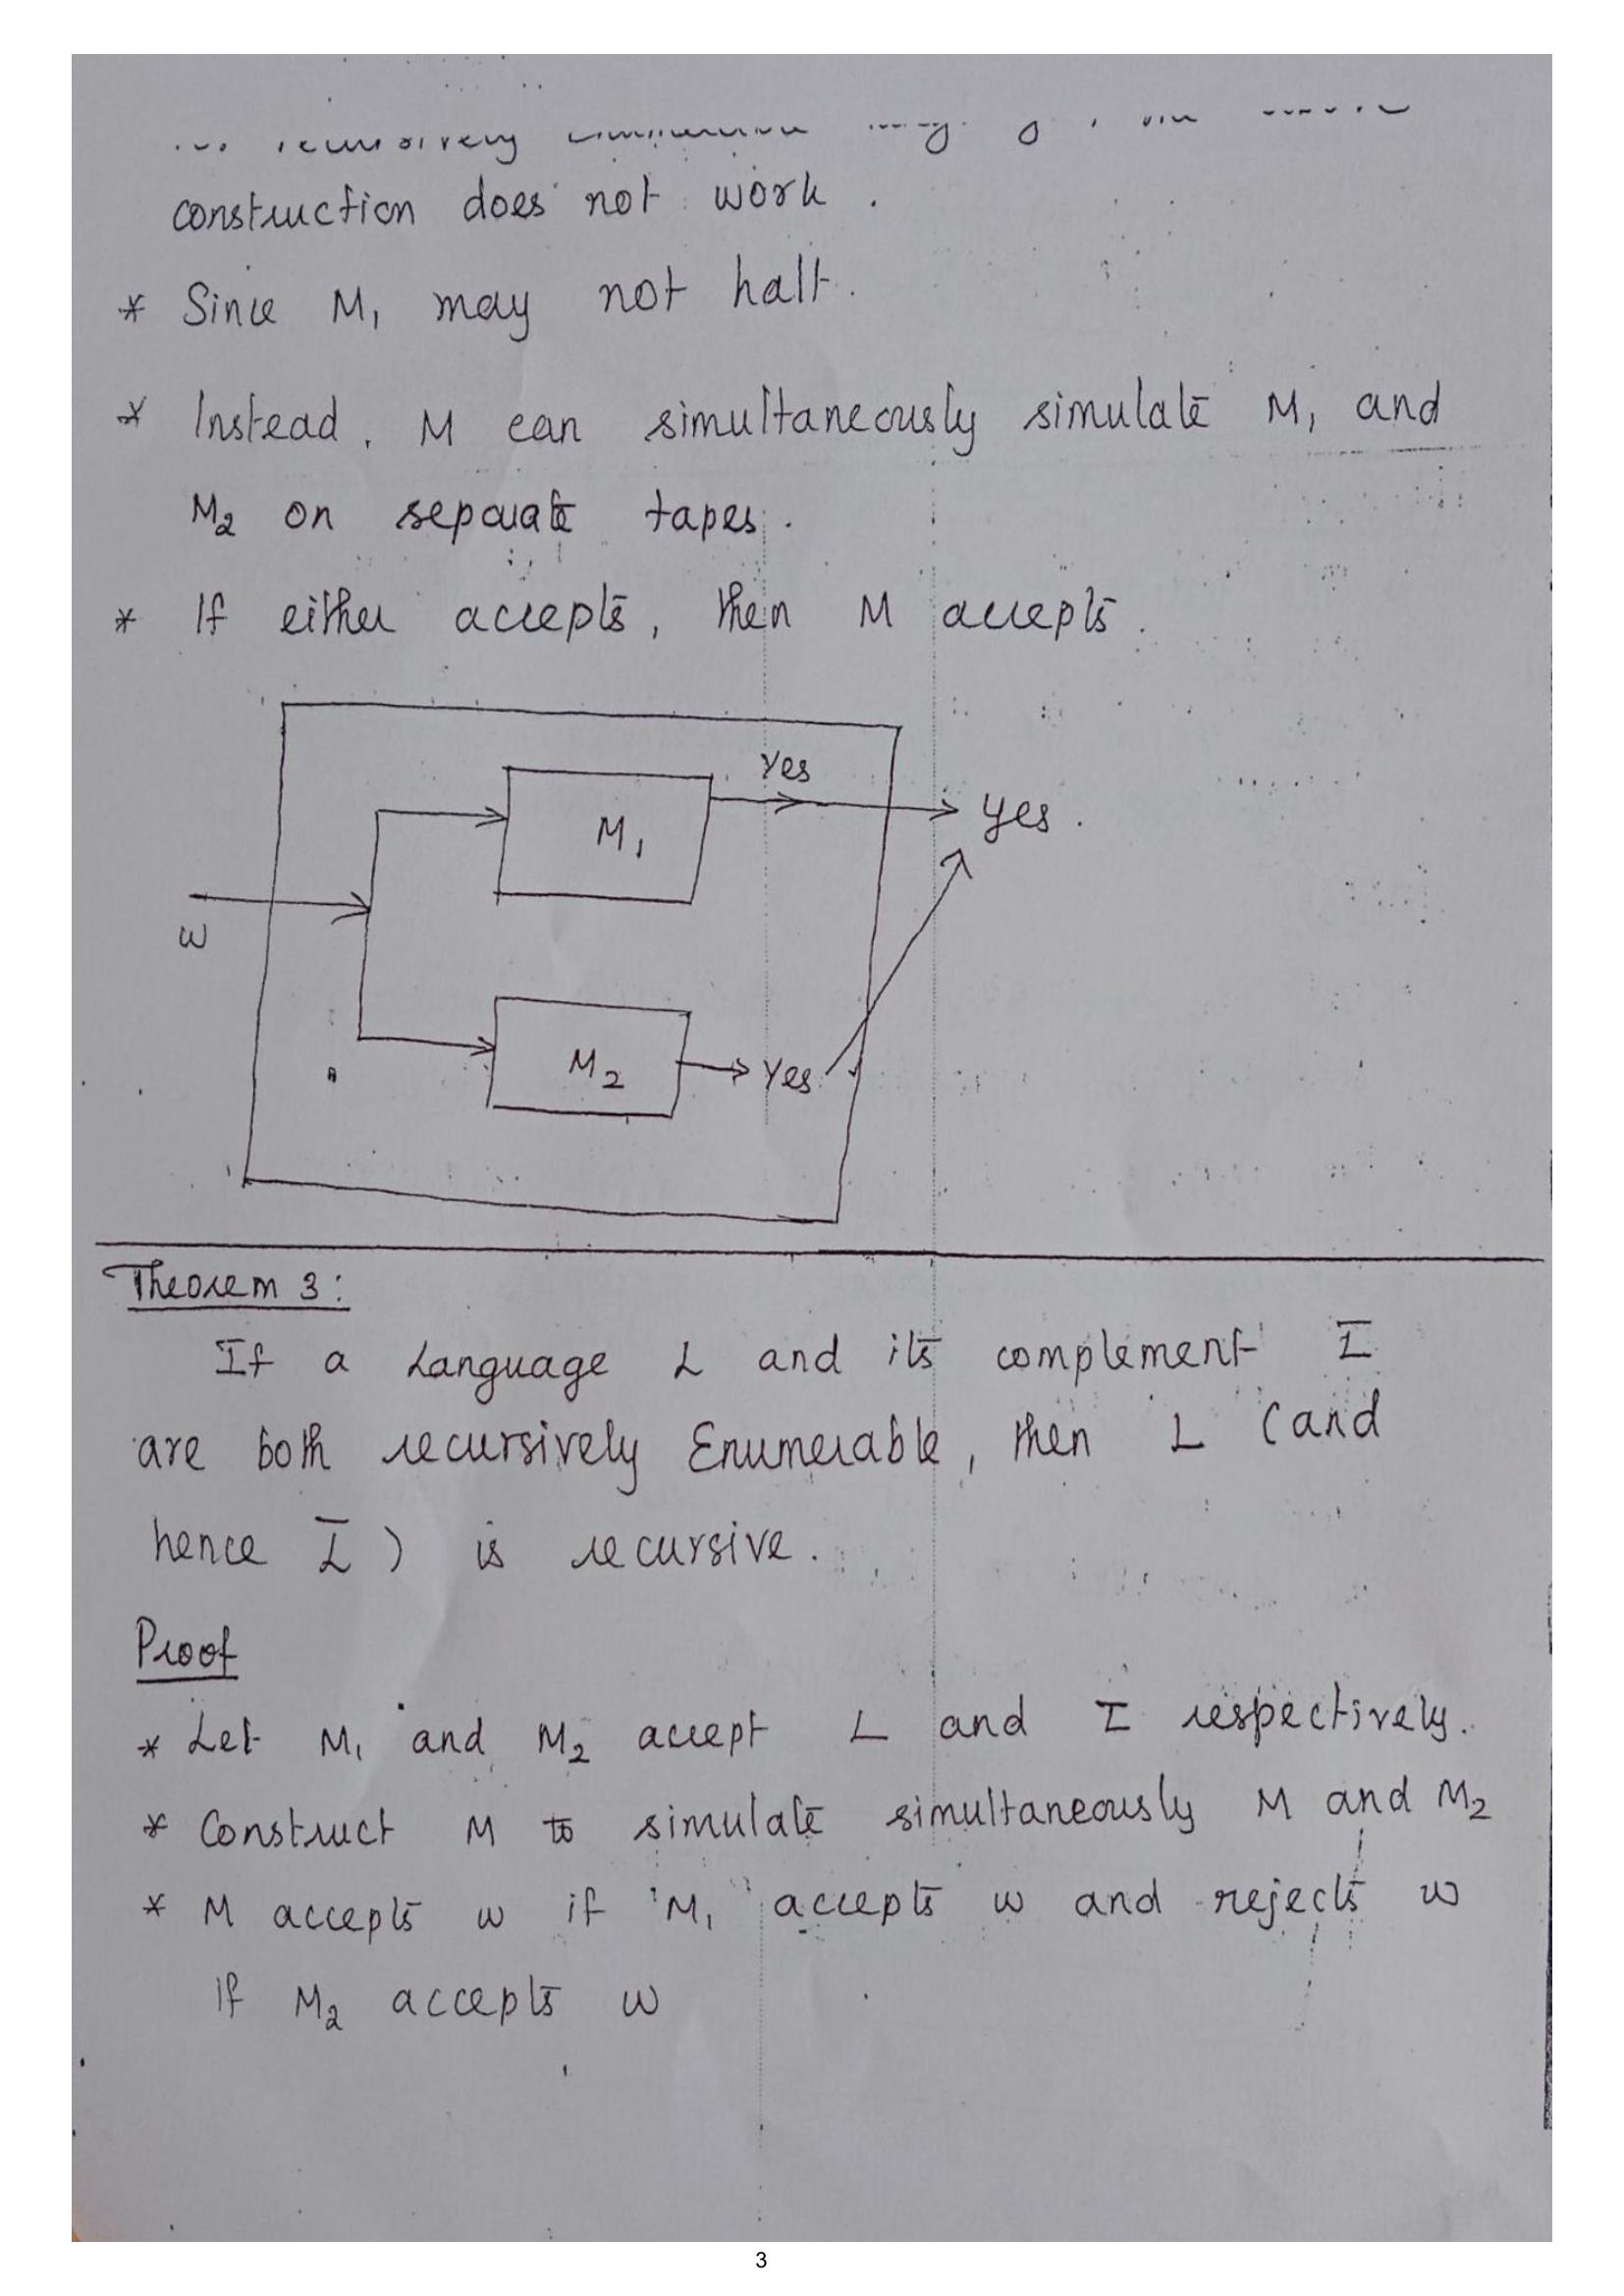 recursively
construction does not work .
* Since M₁ may not halt.
* Instead, M can simultaneously simulate M₁ and
M₂ on separate tapes.
* If either accepts, then M accepts.
Yes
M₁
yes.
w
M₂
Yes
Theorem 3:
If a Language L and its complement L̅
are both recursively Enumerable, then L (and
hence L̅ ) is recursive.
Proof
* Let M₁ and M₂ accept L and L̅ respectively.
* Construct M to simulate simultaneously M and M₂
* M accepts w if M₁ accepts w and rejects w
If M₂ accepts w
3